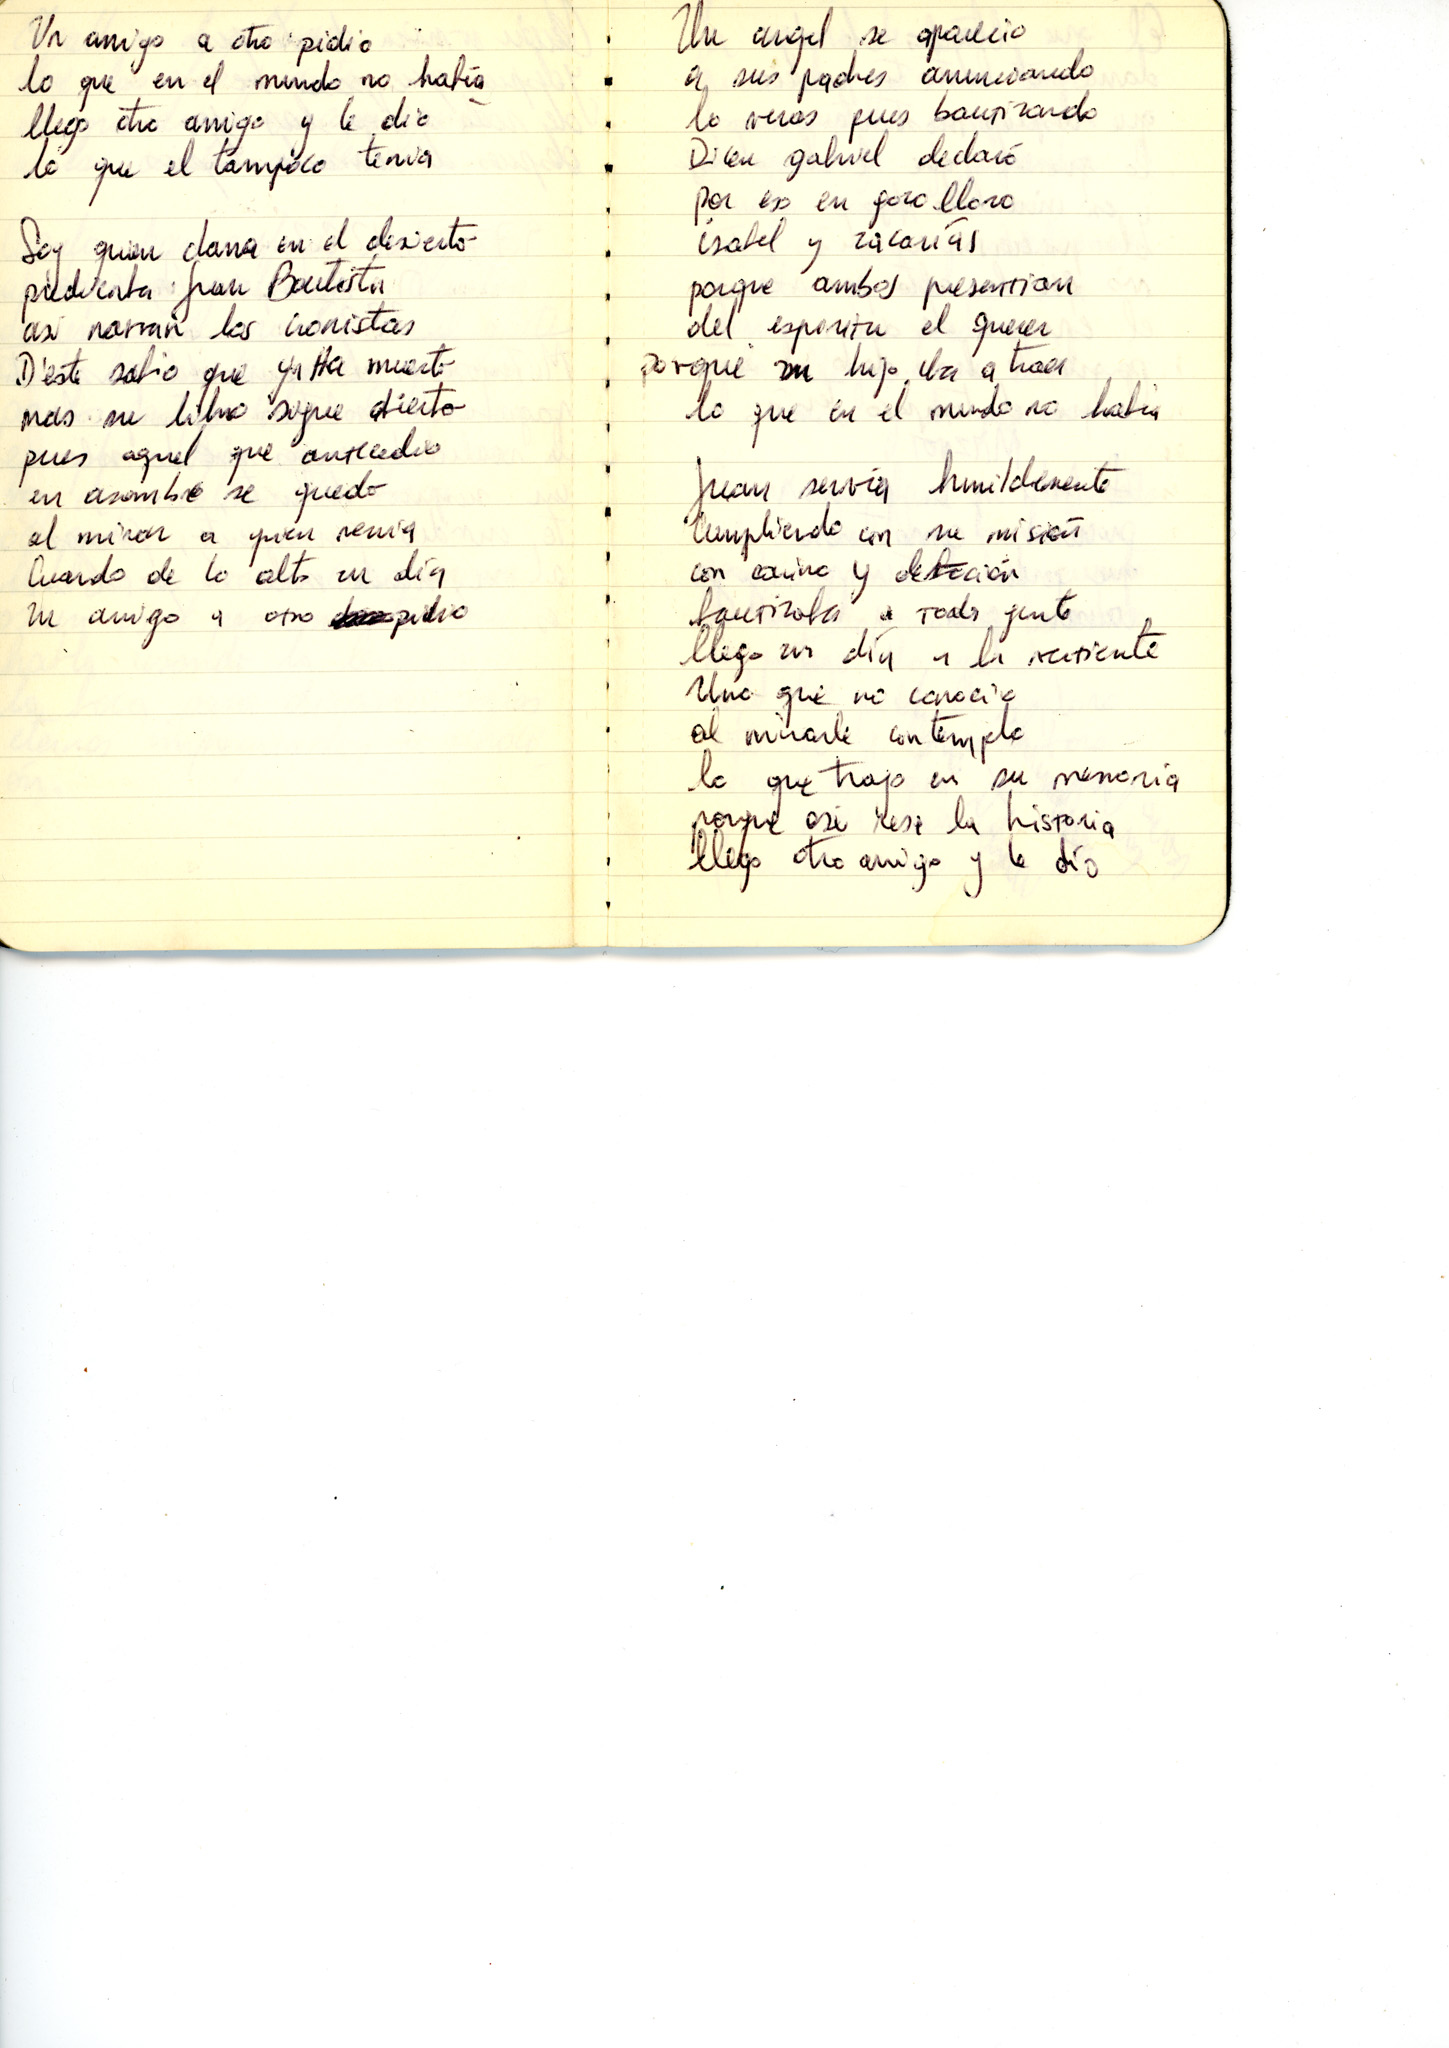 Un amigo a otro pidio
lo que en el mundo no había
llego otro amigo y le dio
lo que el tampoco tenia
Soy quien clama en el desierto
predicaba Juan Bautista
asi narran los cronistas
D'este sabio que ya Ha muerto
mas su libro sigue abierto
pues aquel que antecedio
en asombro se quedo
al mirar a quien venia
Cuando de lo alto un día
un amigo a otro pidio
Un angel se aparecio
a sus padres anunciando
lo veras pues bautizando
Dicen gabriel declaró
por eso en gozo lloro
isabel y zacarías
porque ambos presentian
del espiritu el querer
porque un hijo iba a traer
lo que en el mundo no habia
Juan servía humildemente
Cumpliendo con su misión
con cariño y
bautizaba a toda gente
llego un día a la vertiente
Uno que no conocio
al mirarle contemplo
lo que trajo en su memoria
porque asi reza la historia
llego otro amigo y le dío